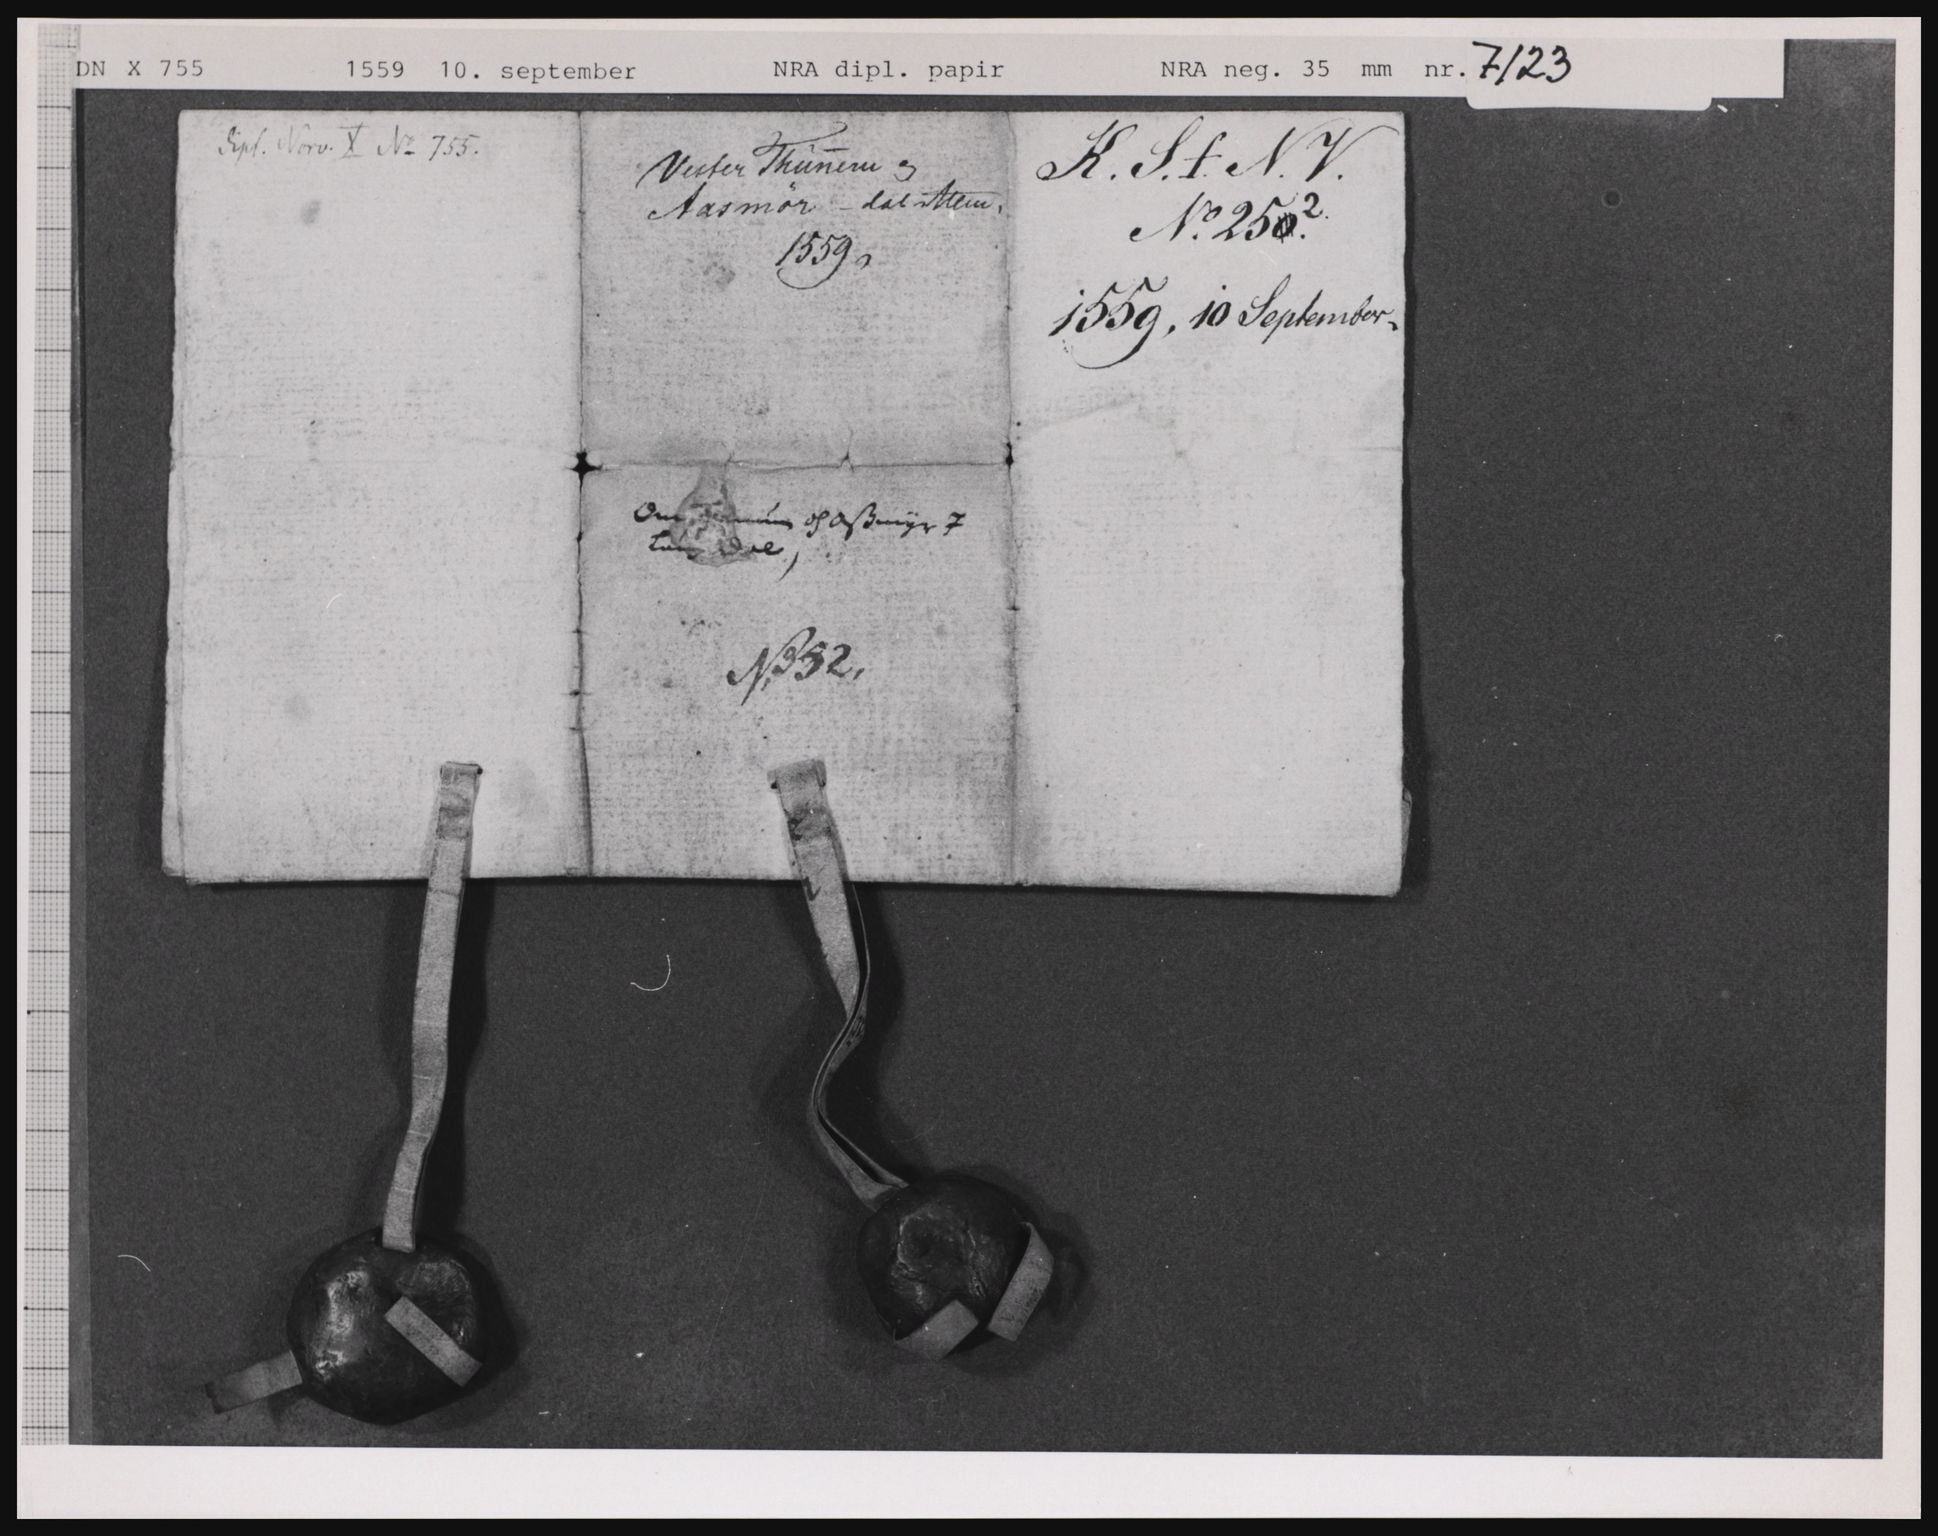 DN X 755 1559 10. september NRA dipl. papir NRA neg. 35 mm nr. 7/23
Dipl. Norv. X No 755.
Vester
Aasmör
1559
K. S. f. N. V.
No 252.
1559, 10 September
Om och
No 352.